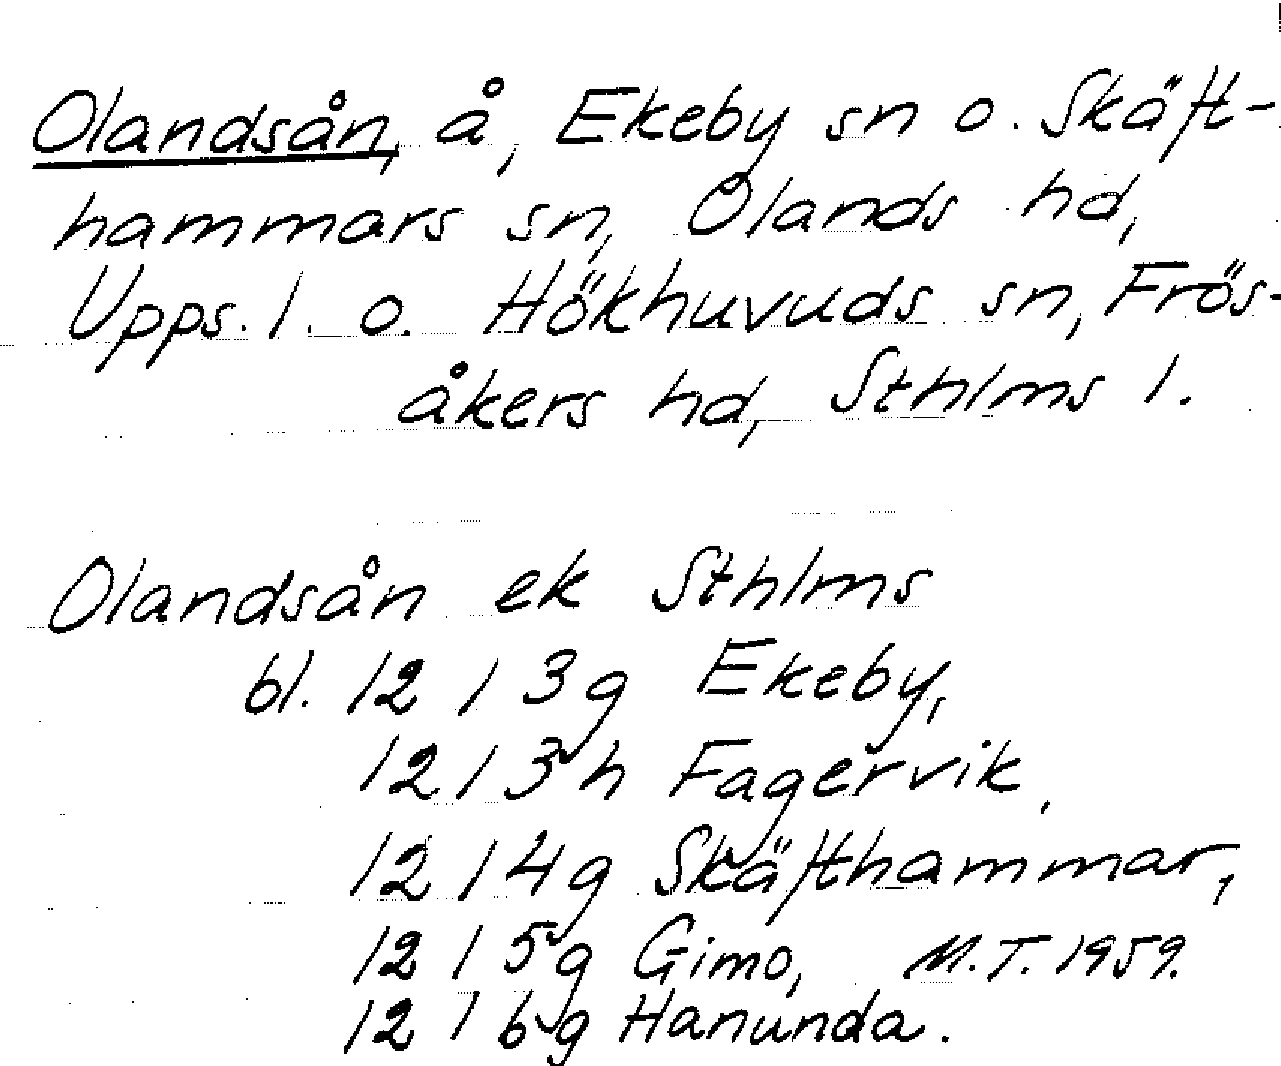 Olandsån, å, Ekeby sn o. Skäft-
hammars sn, Olands hd,
Upps. l. o. Hökhuvuds sn, Frös-
åkers hd, Sthlms l.
Olandsån ek Sthlms
bl. 12 I 3g Ekeby,
12 I 3h Fagervik,
12 I 4g Skäfthammar,
12 I 5g Gimo, M.T. 1959.
12 I 6g Hanunda.